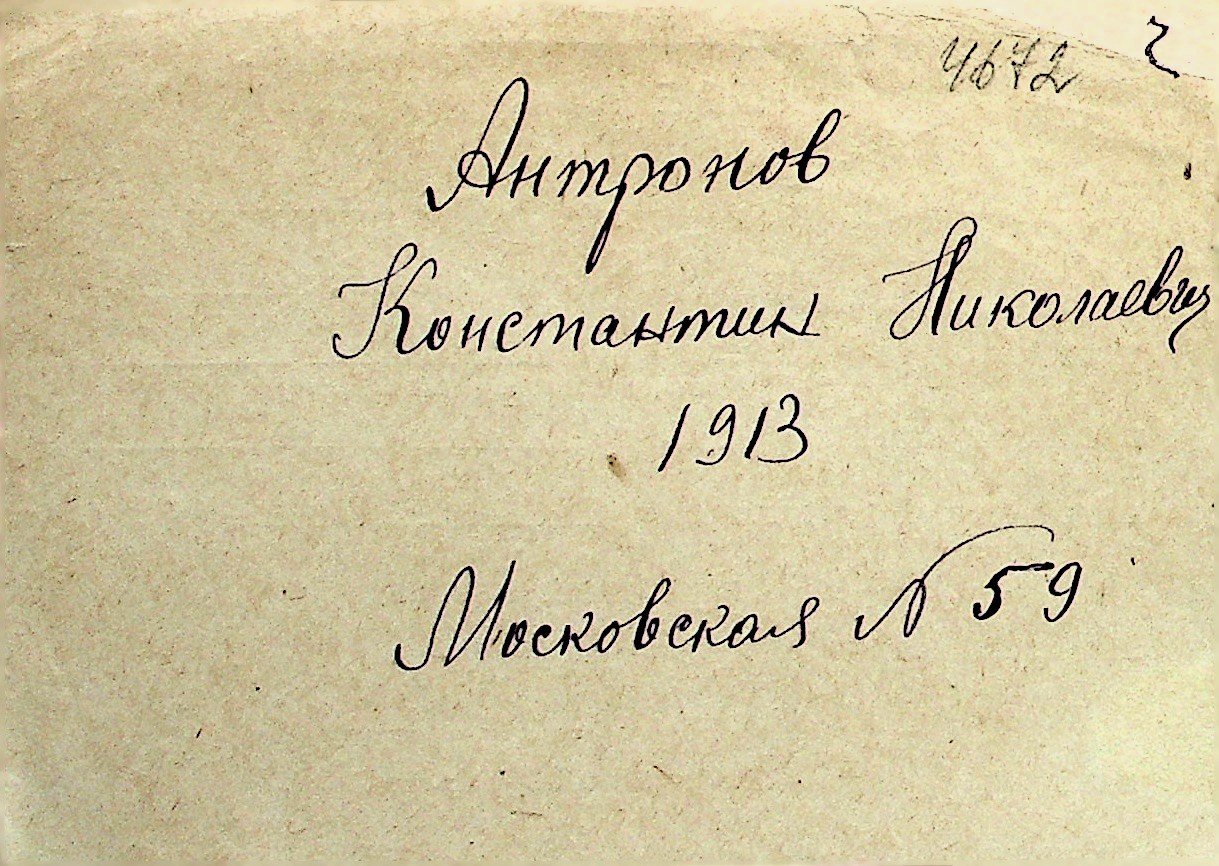 4672
Антронов
Константин Николаевич
1913
Московская № 59